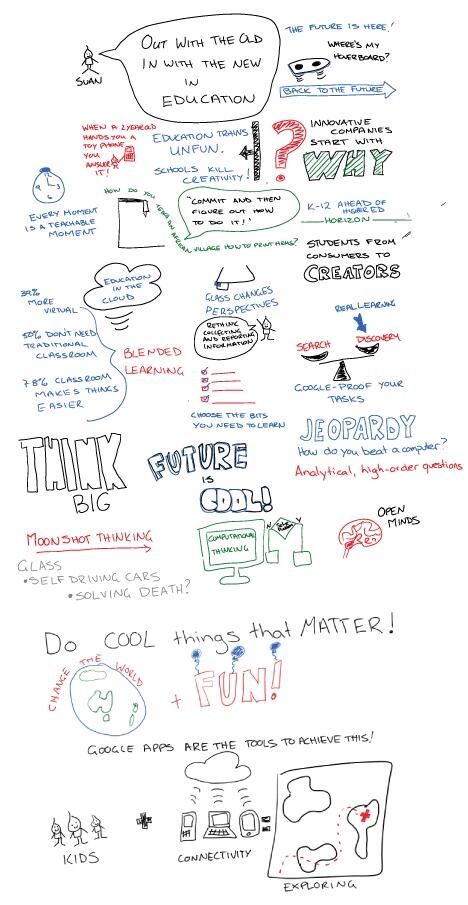 THE FUTURE IS HERE!
OUT WITH THE OLD
IN WITH THE NEW
IN
EDUCATION
SUAN
WHERE'S MY
HOVERBOARD?
BACK TO THE FUTURE
WHEN A 2 YEAR OLD
HANDS YOU A
TOY PHONE
YOU
ANSWER
IT!
EDUCATION TRAINS
UNFUN.
SCHOOLS KILL
CREATIVITY!
!?
INNOVATIVE
COMPANIES
START WITH
WHY
9 12 3 6
EVERY MOMENT
IS A TEACHABLE
MOMENT
HOW DO YOU TEACH AN AFRICAN VILLAGE HOW TO PRINT MONEY?
"COMMIT AND THEN
FIGURE OUT HOW
TO DO IT!"
K-12 AHEAD OF
HIGHER ED
HORIZON
STUDENTS FROM
CONSUMERS TO
CREATORS
EDUCATION
IN THE
CLOUD
39%
MORE
VIRTUAL
50% DON'T NEED
TRADITIONAL
CLASSROOM
78% CLASSROOM
MAKES THINGS
EASIER
BLENDED
LEARNING
GLASS CHANGES
PERSPECTIVES
RETHINK
COLLECTING
AND REPORTING
INFORMATION
CHOOSE THE BITS
YOU NEED TO LEARN
REAL LEARNING
SEARCH
DISCOVERY
GOOGLE-PROOF YOUR
TASKS
THINK
BIG
FUTURE
IS
COOL!
JEOPARDY
How do you beat a computer?
Analytical, high-order questions
MOONSHOT THINKING
GLASS
• SELF DRIVING CARS
• SOLVING DEATH?
COMPUTATIONAL
THINKING
N
Y
OPEN
MINDS
Do COOL things that MATTER!
CHANGE THE WORLD
+ FUN!
GOOGLE APPS ARE THE TOOLS TO ACHIEVE THIS!
KIDS
+
CONNECTIVITY
=
EXPLORING